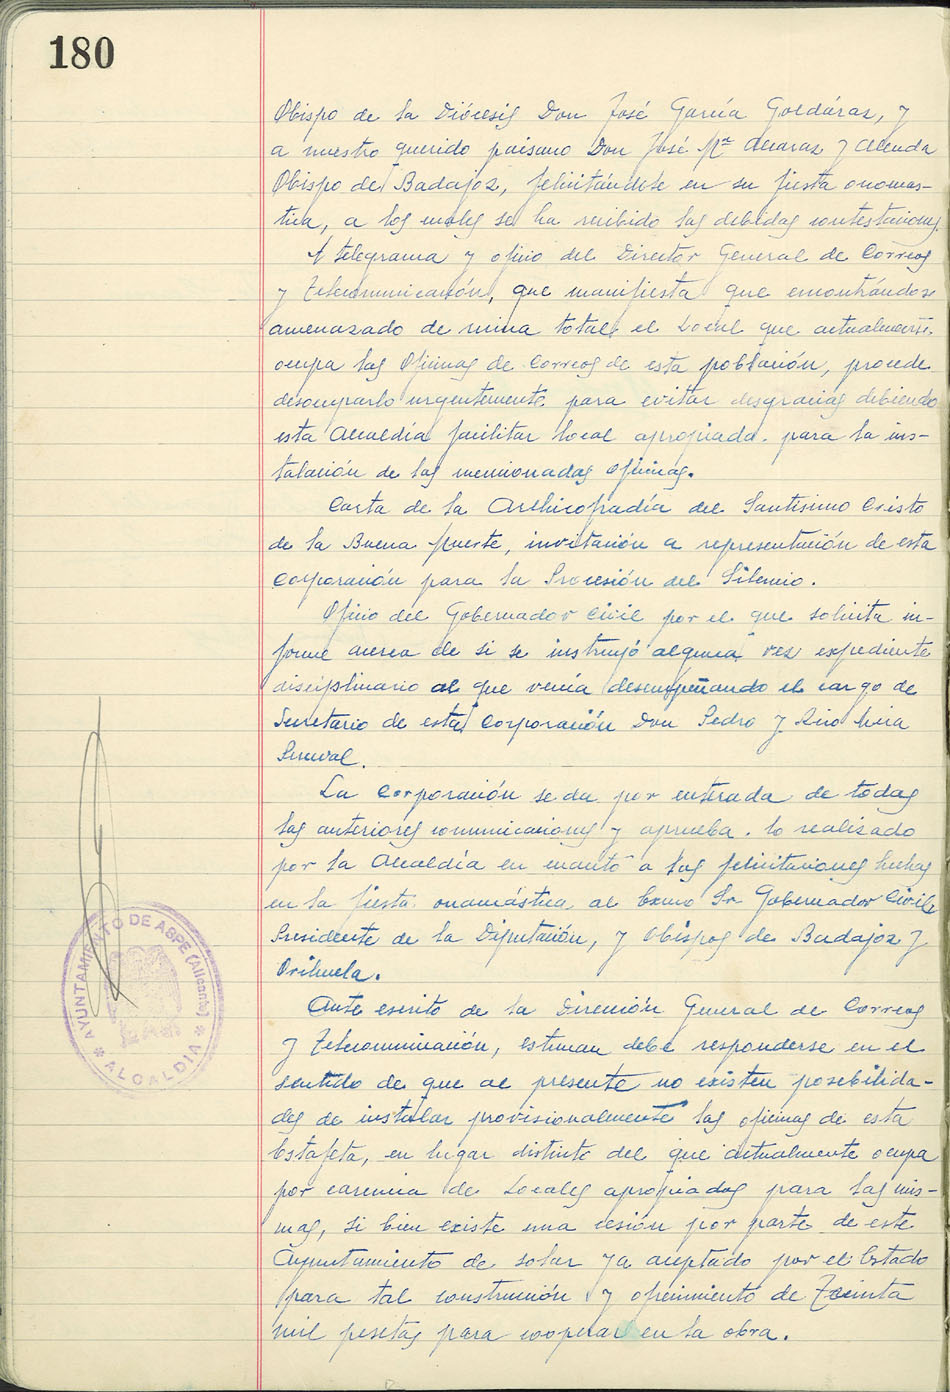 180
Obispo de la Diócesis Don José García Goldáraz, y
a nuestro querido paisano Don José Mª Alcaraz y Alenda
Obispo de Badajoz, felicitándole en su fiesta onomas-
tica, a los cuales se ha recibido las debidas contestaciones.
A telegrama y oficio del Director General de Correos
y Telecomunicación, que manifiesta que encontrándose
amenazado de ruina total el Local que actualmente
ocupa las Oficinas de Correos de esta población, procede
desocuparlo urgentemente para evitar desgracias debiendo
esta Alcaldía facilitar local apropiado para la ins-
talación de las mencionadas oficinas.
Carta de la Archicofradía del Santísimo Cristo
de la Buena Muerte, invitación a representación de esta
Corporación para la Procesión del Silencio.
Oficio del Gobernador Civil por el que solicita in-
forme acerca de si se instruyó alguna vez expediente
disciplinario al que venía desempeñando el cargo de
Secretario de esta Corporación Don Pedro y Mira
La Corporación se da por enterada de todas
las anteriores comunicaciones y aprueba lo realizado
por la Alcaldía en cuanto a las felicitaciones hechas
en la fiesta onomástica al Excmo Sr Gobernador Civil,
Presidente de la Diputación, y Obispos de Badajoz y
Orihuela.
Ante escrito de la Dirección General de Correos
y Telecomunicación, estiman debe responderse en el
sentido de que al presente no existen posibilida-
des de instalar provisionalmente las oficinas de esta
Estafeta, en lugar distinto del que actualmente ocupa
por carencia de Locales apropiados para las mis-
mas, si bien existe una cesión por parte de este
Ayuntamiento de solar ya aceptado por el Estado
para tal construcción y ofrecimiento de Treinta
mil pesetas para cooperar en la obra.
AYUNTAMIENTO DE ASPE (Alicante)
* ALCALDIA *